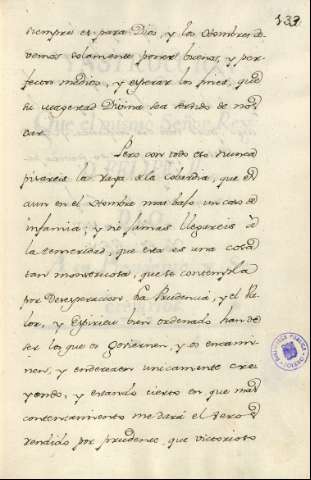 133
siempre es para Dios, y los Hombres de
vemos solamente poner buenos, y per-
fectos medios, y esperar los fines, que
su
Divina sea servido de
dar.
Pero con todo esto nunca
piseis la raya de la Cobardia, que es
aun en el Hombre mas bajo un caso de
infamia; y ni Jamas llegareis â
la temeridad, que esta es una cosa
tan monstruosa, que se contempla
por Desesperacion. La Prudencia, y el Va-
lor, y Espiritu bien ordenado han de
ser los que os Goviernen, y os encami-
nen, y enderecen unicamente cre
yendo, y estando cierto en que mas
contentamiento me dará el veros
rendido por prudente que victorioso